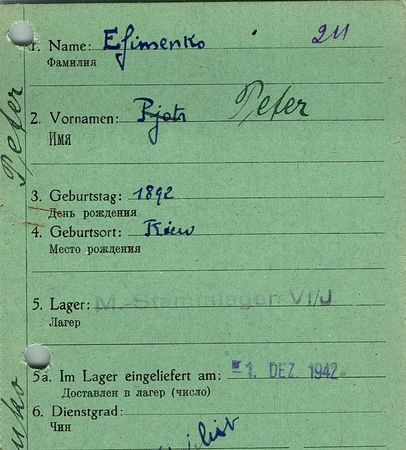 1. Name: Efimenko 211
Фамилия
2. Vornamen: Pjotr Peter
Имя
3. Geburtstag: 1892
День рождения
4. Geburtsort: Kiew
Место рождения
5. Lager: M.-Stammlager VI/J
Лагер
5a. Im Lager eingeliefert am: 1. DEZ. 1942
Доставлен в лагер (число)
6. Dienstgrad:
Чин
Peter